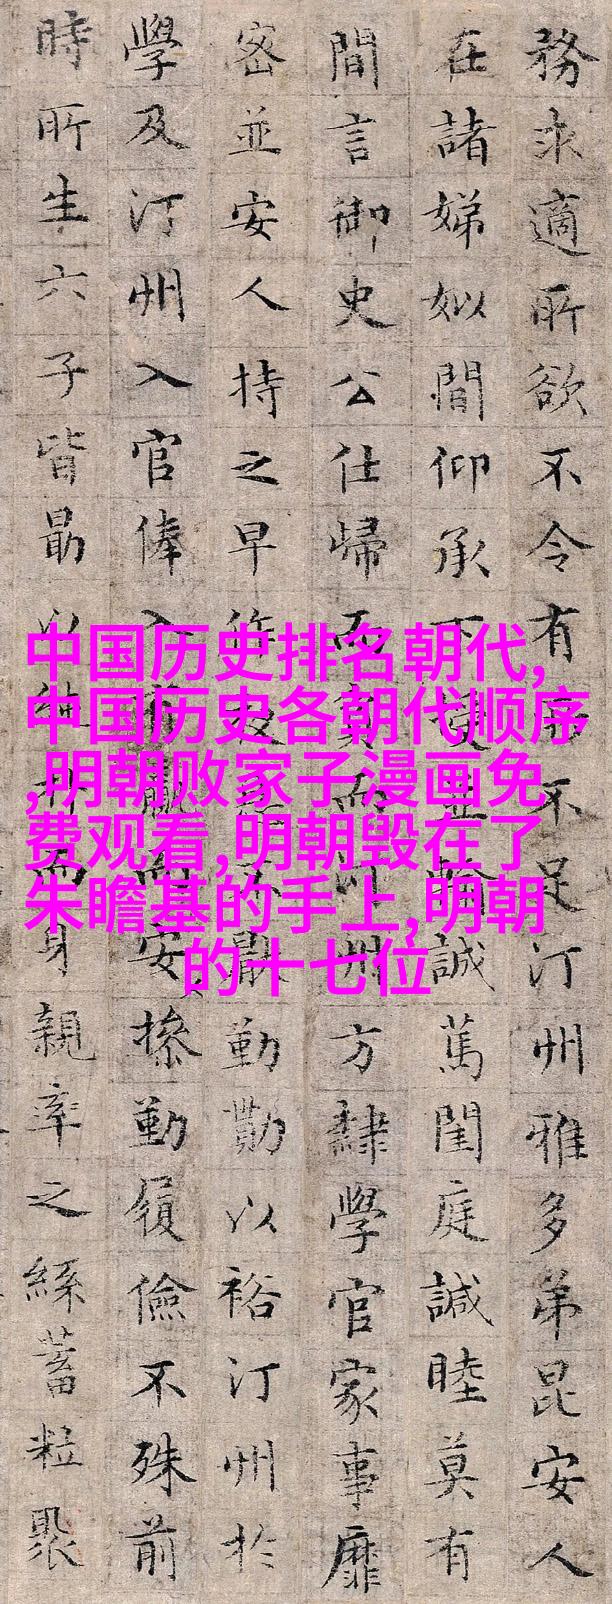 務求適所欲不令有不足汀州雅多弟昆安人
在諸娣姒間仰承下並誠萬閨庭諴睦莫有
間言御史公仕歸而而州方隸學官家事靡
密並安人持之早作不勤勩以裕汀州於
學及汀州入官俸入而安操勤履儉不殊前
時所生六子皆勗以而身親率之絲蓄粒聚
中国历史排名朝代,
中国历史各朝代顺序
,明朝败家子漫画免
费观看,明朝毁在了
朱瞻基的手上,明朝
的十七位